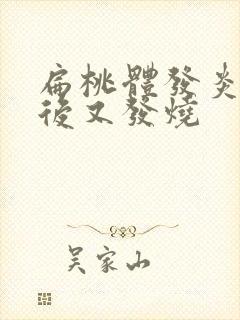 扁桃體發炎
後又發燒
吴家山